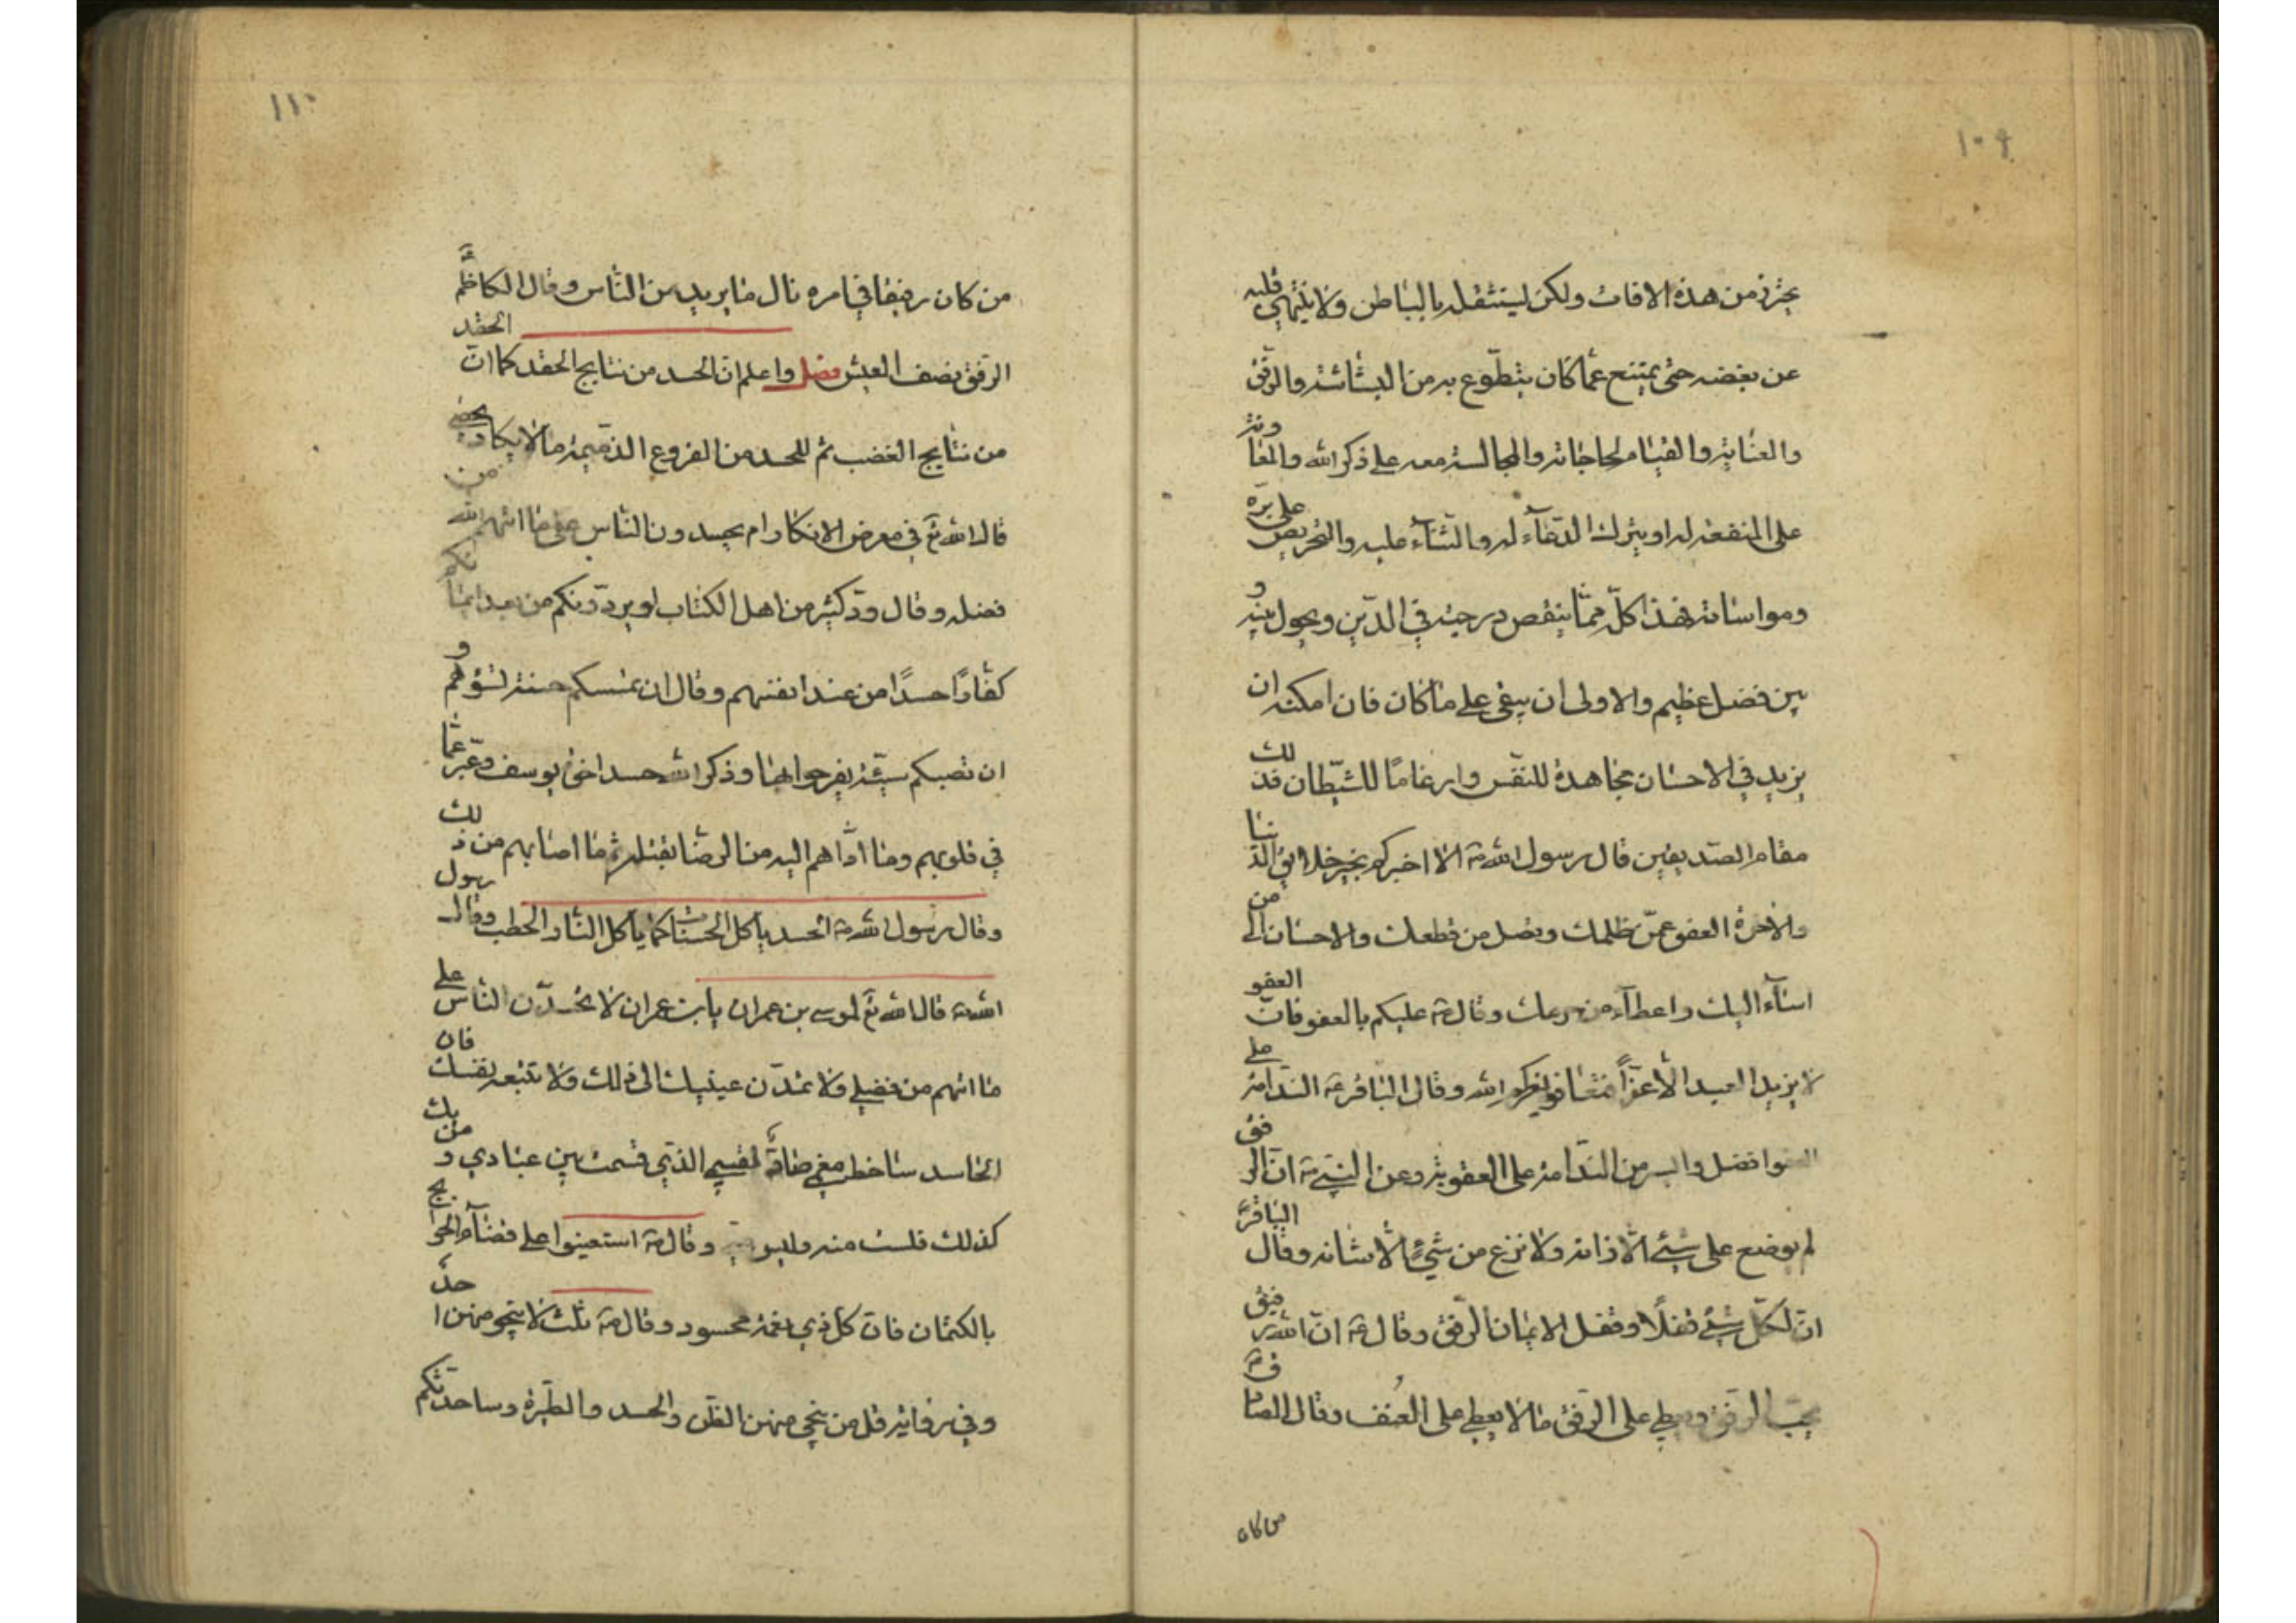 ١٠٩
يحترز من هذه الافات ولكن ليستثقله بالباطن ولا ينتهي قلبه
عن بغضه حتى يمتنع عما كان يتطوع به من البشاشة والرفق
والعناية والقيام لحاجاته والمجالسة معه على ذكر الله والمعاونة
على المنفعة له او يترك الدعاء له والثناء عليه والتحريص على بره
ومواساته فهذا كلّه مما ينقص درجته في الدّين ويحول بينه و
بين فضل عظيم والاولى ان يبقى على ما كان فان امكنه ان
يزيد في الاحسان مجاهدة للنفس وارغامًا للشيطان فذلك
مقام الصديقين قال رسول الله ص الا اخبركم بخير خلايق الدنيا
والاخرة العفو عمّن ظلمك وتصل من قطعك والاحسان الى من
اساء اليك واعطاء من حرمك وقال ص عليكم بالعفو فانّ العفو
لا يزيد العبد الا عزّاً فتعافوا يعزكم الله وقال الباقر ع الندامة على
العفو افضل وايسر من الندامة على العقوبة وعن النبي ص انّ الرفق
لم يوضع على شئ الا زانه ولا نزع من شئ الا شانه وقال الباقر ع
انّ لكلّ شئ قفلًا وقفل الايمان الرّفق وقال ع انّ الله رفيق
يحب الرفق ويعطي على الرفق ما لا يعطي على العنف وقال الصادق ع
من كان
١١٠
من كان رفيقا في امره نال ما يريد من الناس وقال الكاظم ع
الرفق نصف العيش فصل واعلم انّ الحسد من نتايج الحقد كما انّ الحقد
من نتايج الغضب ثم للحسد من الفروع الذميمة ما لا يكاد يحصى
قال الله تع في معرض الانكار ام يحسدون الناس على ما اتيهم الله من
فضله وقال ودّ كثير من اهل الكتاب لو يردّونكم من بعد ايمانكم
كفارًا حسدًا من عند انفسهم وقال ان تمسسكم حسنة تسؤهم و
ان تصبكم سيّئة يفرحوا بها وذكر الله حسد اخوة يوسف وعبّر عما
في قلوبهم وما ادّاهم اليه من الرضا بقتله ثم ما اصابهم من ذلك
وقال رسول الله ص الحسد ياكل الحسنات كما ياكل النار الحطب وقال رسول
الله ص قال الله تع لموسى بن عمران يابن عمران لا تحسدّن الناس على
ما اتيهم من فضلي ولا تمدّن عينيك الى ذلك ولا تتبعه نفسك فان
الحاسد ساخط لقسمي الذي قسمت بين عبادي ومن يك
كذلك فلست منه وليس وقال ص استعينوا على قضاء الحوايج
بالكتمان فانّ كل ذي نعمة محسود وقال ص ثلث لا ينجو منهن احد
وفي رواية قل من ينجي منهن الظن والحسد والطيرة وساحدثكم